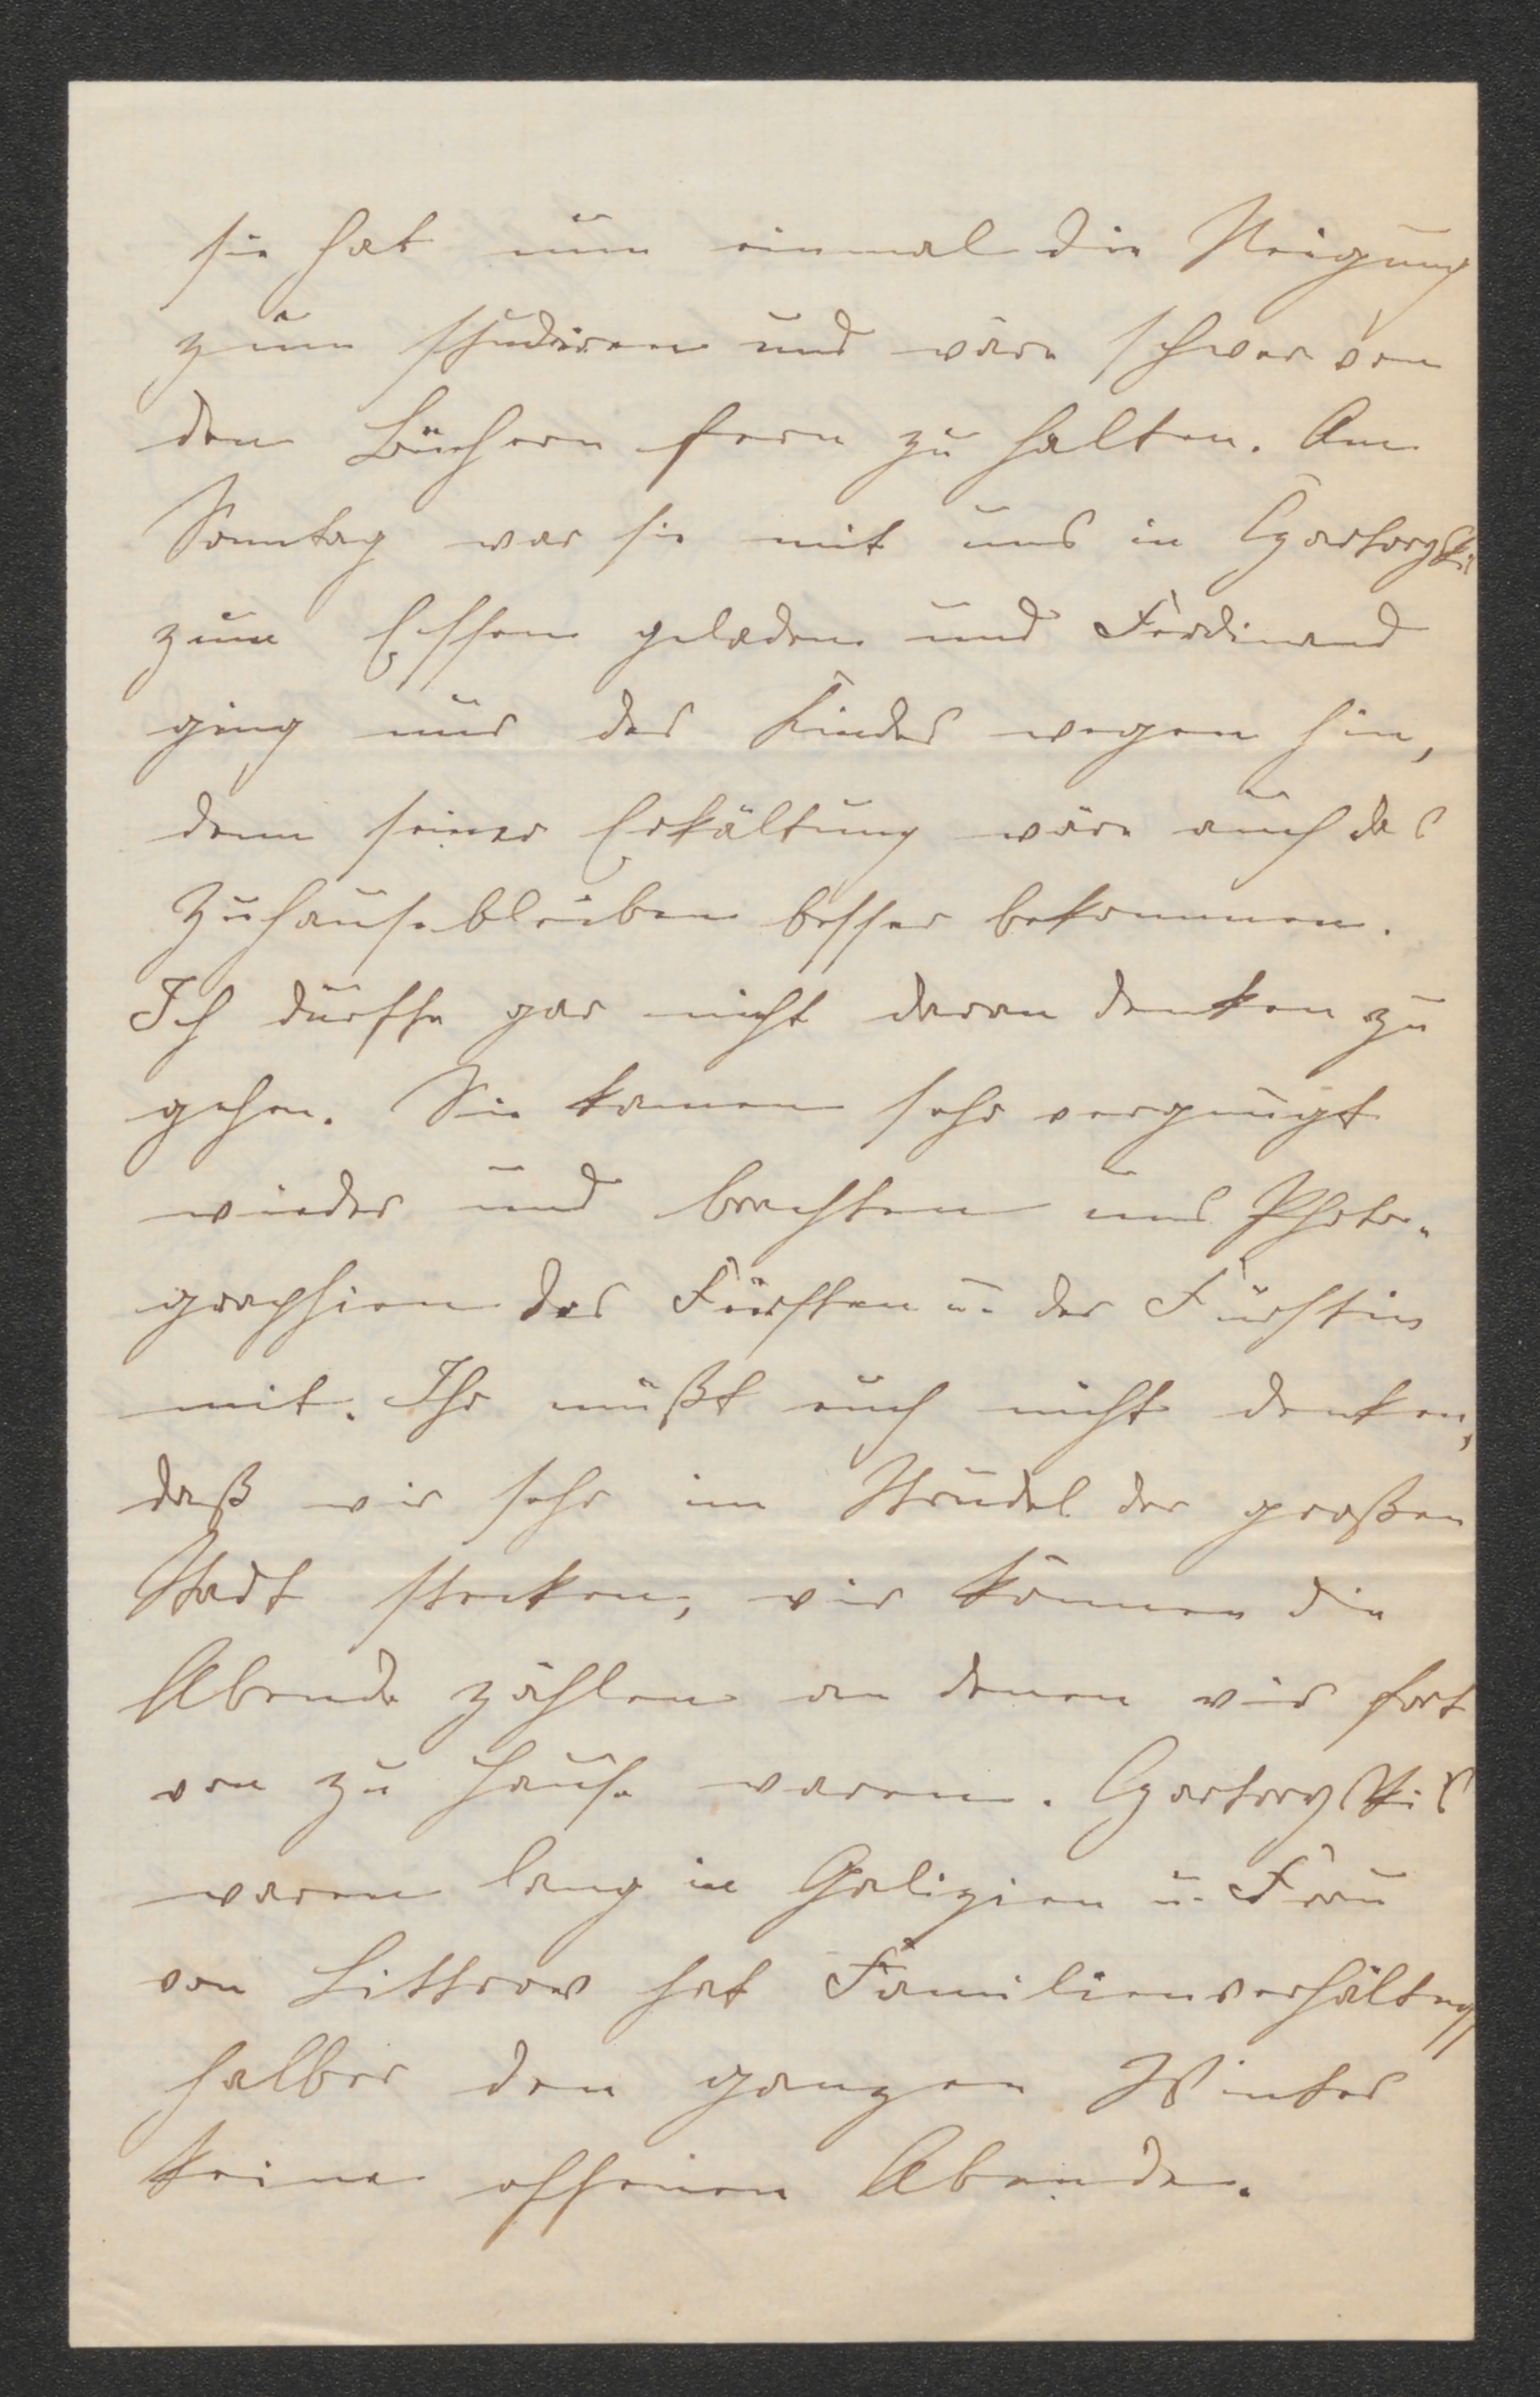 sie hat nun einmal die Neigung
zum studiren und wäre schwer von
den Büchern fern zu halten. Am
Sonntag war sie mit uns in Czartoryski
zum Essen geladen und Ferdinand
ging nur des Kindes wegen hin,
denn seiner Erkältung wäre auch das
Zuhausebleiben besser bekommen.
Ich durfte gar nicht daran denken zu
gehen. Sie kamen sehr vergnügt
wieder und brachten uns Photo-
graphien des Fürsten u. der Fürstin
mit. Ihr müßt euch nicht denken,
daß wir sehr im Strudel der großen
Stadt stecken, wir können die
Abende zählen an denen wir fort
von zu Hause waren. Czartoryskis
waren lang in Galizien u. Frau
von Littrow hat
halber den ganzen Winter
keine offenen Abende.